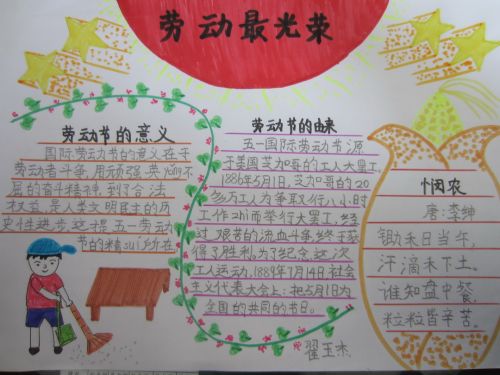 劳动最光荣
劳动节的意义
国际劳动节的意义在于
劳动者斗争,用顽强、英yong不
屈的奋斗精神,到了合法
权益,是人类文明民主的历
史性进步,这提五一劳动
节的精sui所在
劳动节的由来
五一国际劳动节源
于美国芝加哥的工人大罢工,
1886年5月1日,芝加哥的20
多万工人为争取八小时
工作zhi而举行大罢工,经
过艰苦的流血斗争,终于获
得了胜利。为了纪念这次
工人运动,1889年7月14日,社会
主义代表大会上:把5月1日为
全国的共同的节日。
翟玉杰
悯农
唐:李绅
锄禾日当午,
汗滴禾下土。
谁知盘中餐,
粒粒皆辛苦。